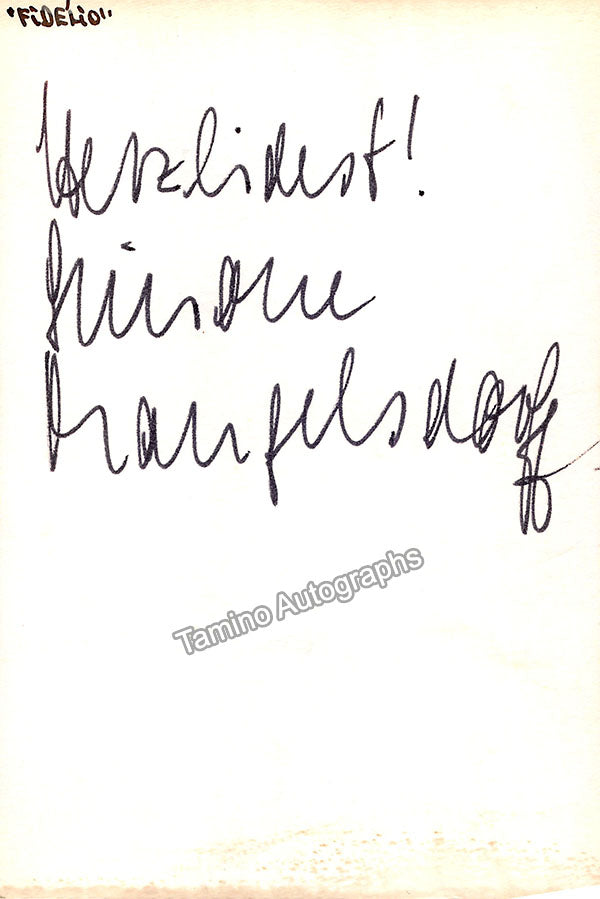 "FiDELiO"
Herzlichst!
Simone
Mangelsdorff
Tamino Autographs